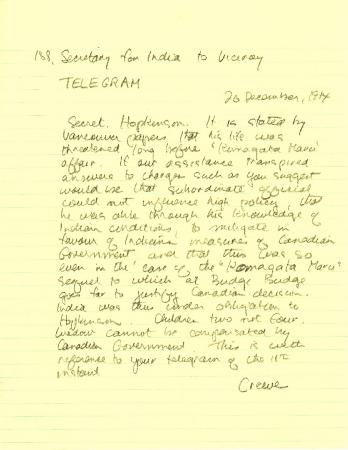 188, Secretary for India to Viceroy
TELEGRAM
26 December, 1914
Secret. Hopkinson. It is stated by
Vancouver papers that his life was
threatened long before "Komagata Maru"
affair. If our assistance transpired
answers to charges such as you suggest
would be that subordinate official
could not influence high policy, that
he was able through his knowledge of
Indian conditions, to mitigate in
favour of Indians measures of Canadian
Government and that this was so
even in the case of the "Komagata Maru"
sequel to which at Budge Budge
goes far to justify Canadian decision.
India was thus under obligation to
Hopkinson. Children two not four.
Widow cannot be compensated by
Canadian Government. This is with
reference to your telegram of the
instant
Crewe